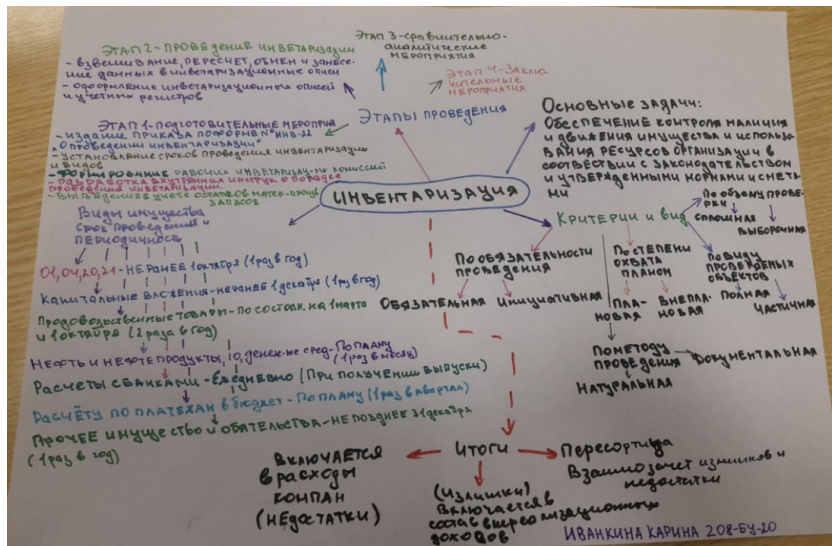 ЭТАП 2 - ПРОВЕДЕНИЕ ИНВЕТАРИЗАЦИИ
- ВЗВЕШИВАНИЕ, ПЕРЕСЧЕТ, ОБМЕН И ЗАНЕСЕ-
НИЕ ДАННЫХ В ИНВЕТАРИЗАЦИОННЫЕ ОПИСИ
- ОФОРМЛЕНИЕ ИНВЕТАРИЗАЦИОННЫХ ОПИСЕЙ
И УЧЕТНЫХ РЕГИСТРОВ
ЭТАП 3 - СРАВНИТЕЛЬНО-
АНАЛИТИЧЕСКИЕ
МЕРОПРИЯТИЯ
ЭТАП 4 - ЗАКЛЮ
ЧИТЕЛЬНЫЕ
МЕРОПРИЯТИЯ
ЭТАПЫ ПРОВЕДЕНИЯ
ЭТАП 1 - ПОДГОТОВИТЕЛЬНЫЕ МЕРОПРИЯ
- ИЗДАНИЕ ПРИКАЗА ПО ФОРМЕ № ИНВ-22
"О ПРОВЕДЕНИИ ИНВЕТАРИЗАЦИИ"
- УСТАНОВЛЕНИЕ СРОКОВ ПРОВЕДЕНИЯ ИНВЕТАРИЗАЦИИ
И ВИДОВ
- ФОРМИРОВАНИЕ РАБОЧИХ ИНВЕТАРИЗАЦ-ЫХ КОМИССИЙ
- РАЗРАБОТКА ВНУТРЕННИХ ИНСТРУК О ПОРЯДКЕ
ПРОВЕДЕНИЯ ИНВЕТАРИЗАЦИИ
В УЧЕТЕ ОСТАТКОВ МАТЕР-
ЗАПАСОВ
ОСНОВНЫЕ ЗАДАЧИ:
ОБЕСПЕЧЕНИЕ КОНТРОЛЯ НАЛИЧИЯ
И ДВИЖЕНИЯ ИМУЩЕСТВА И ИСПОЛЬЗО-
ВАНИЯ РЕСУРСОВ ОРГАНИЗАЦИИ В
СООТВЕСТВИИ С ЗАКОНОДАТЕЛЬСТВОМ
И УТВЕРЖДЕННЫМИ НОРМАМИ И СМЕТА-
МИ
ИНВЕНТАРИЗАЦИЯ
КРИТЕРИИ И ВИД
ПО ОБЪЕМУ ПРОВЕ-
РКИ
СПЛОШНАЯ
ВЫБОРОЧНАЯ
ПО ОБЯЗАТЕЛЬНОСТИ
ПРОВЕДЕНИЯ
ОБЯЗАТЕЛЬНАЯ ИНИЦИАТИВНАЯ
ПО СТЕПЕНИ
ОХВАТА
ПЛАНОМ
ПЛА-
НОВАЯ
ВНЕПЛА-
НОВАЯ
ПО ВИДУ
ПРОВЕРЯЕМЫХ
ОБЪЕКТОВ
ПОЛНАЯ
ЧАСТИЧНАЯ
ПО МЕТОДУ
ПРОВЕДЕНИЯ
ДОКУМЕНТАЛЬНАЯ
НАТУРАЛЬНАЯ
ВИДЫ ИМУЩЕСТВА
СРОК ПРОВЕДЕНИЯ И
ПЕРИОДИЧНОСТЬ
01, 04, 20, 21 - НЕ РАНЕЕ 1 ОКТЯБРЯ (1 РАЗ В ГОД)
КАПИТАЛЬНЫЕ ВЛОЖЕНИЯ - НЕ РАНЕЕ 1 ДЕКАБРЯ (1 РАЗ В ГОД)
ПРОДОВОЛЬСТВЕННЫЕ ТОВАРЫ - ПО СОСТОЯН. НА 1 МАРТА
И 1 ОКТЯБРЯ (2 РАЗА В ГОД)
НЕФТЬ И НЕФТЕПРОДУКТЫ, 10, ДЕНЕЖ-ЫЕ СРЕД - ПО ПЛАНУ
(1 РАЗ В МЕСЯЦ)
РАСЧЕТЫ С БАНКАМИ - ЕЖЕДНЕВНО (ПРИ ПОЛУЧЕНИИ ВЫПУСКИ)
РАСЧЁТУ ПО ПЛАТЕЖАМ В БЮДЖЕТ - ПО ПЛАНУ (1 РАЗ В КВАРТАЛ)
ПРОЧЕЕ ИМУЩЕСТВО И ОБЯТЕЛЬСТВА - НЕ ПОЗДНЕЕ 31 ДЕКАБРЯ
(1 РАЗ В ГОД)
ИТОГИ
ВКЛЮЧАЕТСЯ
В РАСХОДЫ
КОМПАН
(НЕДОСТАТКИ)
(ИЗЛИШКИ)
ВКЛЮЧАЕТСЯ В
СОСТАВ ВНЕРЕАЛИЗАЦИОННЫХ
ДОХОДОВ
ПЕРЕСОРТИЦА
ВЗАИМОЗАЧЕТ ИЗЛИШКОВ И
НЕДОСТАТКИ
ИВАНКИНА КАРИНА 208-БУ-20